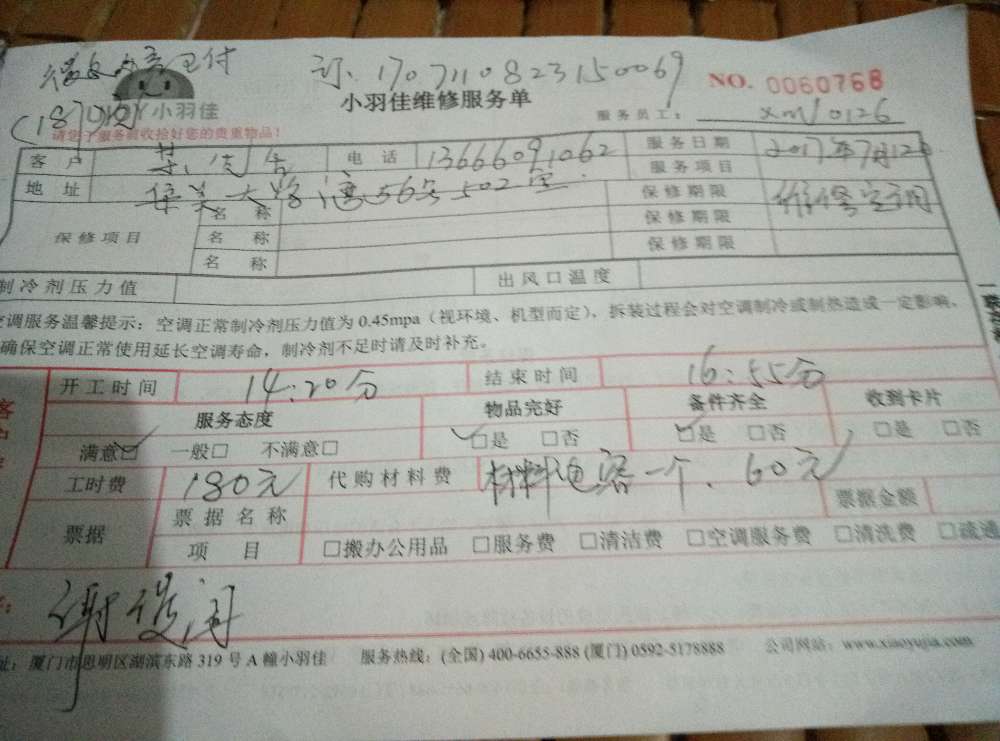 已付 订:1707110823150069 NO. 0060768
小羽佳 小羽佳维修服务单 服务员工: xm10126
请您于服务前收拾好您的贵重物品!
客户 电话 13666091062 服务日期 2017年7月12日
地址 集美大路 56号502室 服务项目 维修空调
保修项目 名称 保修期限
名称 保修期限
名称 保修期限
制冷剂压力值 出风口温度
空调服务温馨提示:空调正常制冷剂压力值为0.45mpa(视环境、机型而定),拆装过程会对空调制冷或制热造成一定影响,
确保空调正常使用延长空调寿命,制冷剂不足时请及时补充。
开工时间 14:20分 结束时间 16:55分
服务态度 物品完好 备件齐全 收到卡片
满意☑ 一般□ 不满意□ ☑是 □否 ☑是 □否 □是 □否
工时费 180元 代购材料费 材料电容一个、60元
票据 票据名称 票据金额
项目 □搬办公用品 □服务费 □清洁费 □空调服务费 □清洗费 □疏通
址:厦门市思明区湖滨东路319号A幢小羽佳 服务热线:(全国)400-6655-888 (厦门)0592-5178888 公司网站:www.xiaoyujia.com